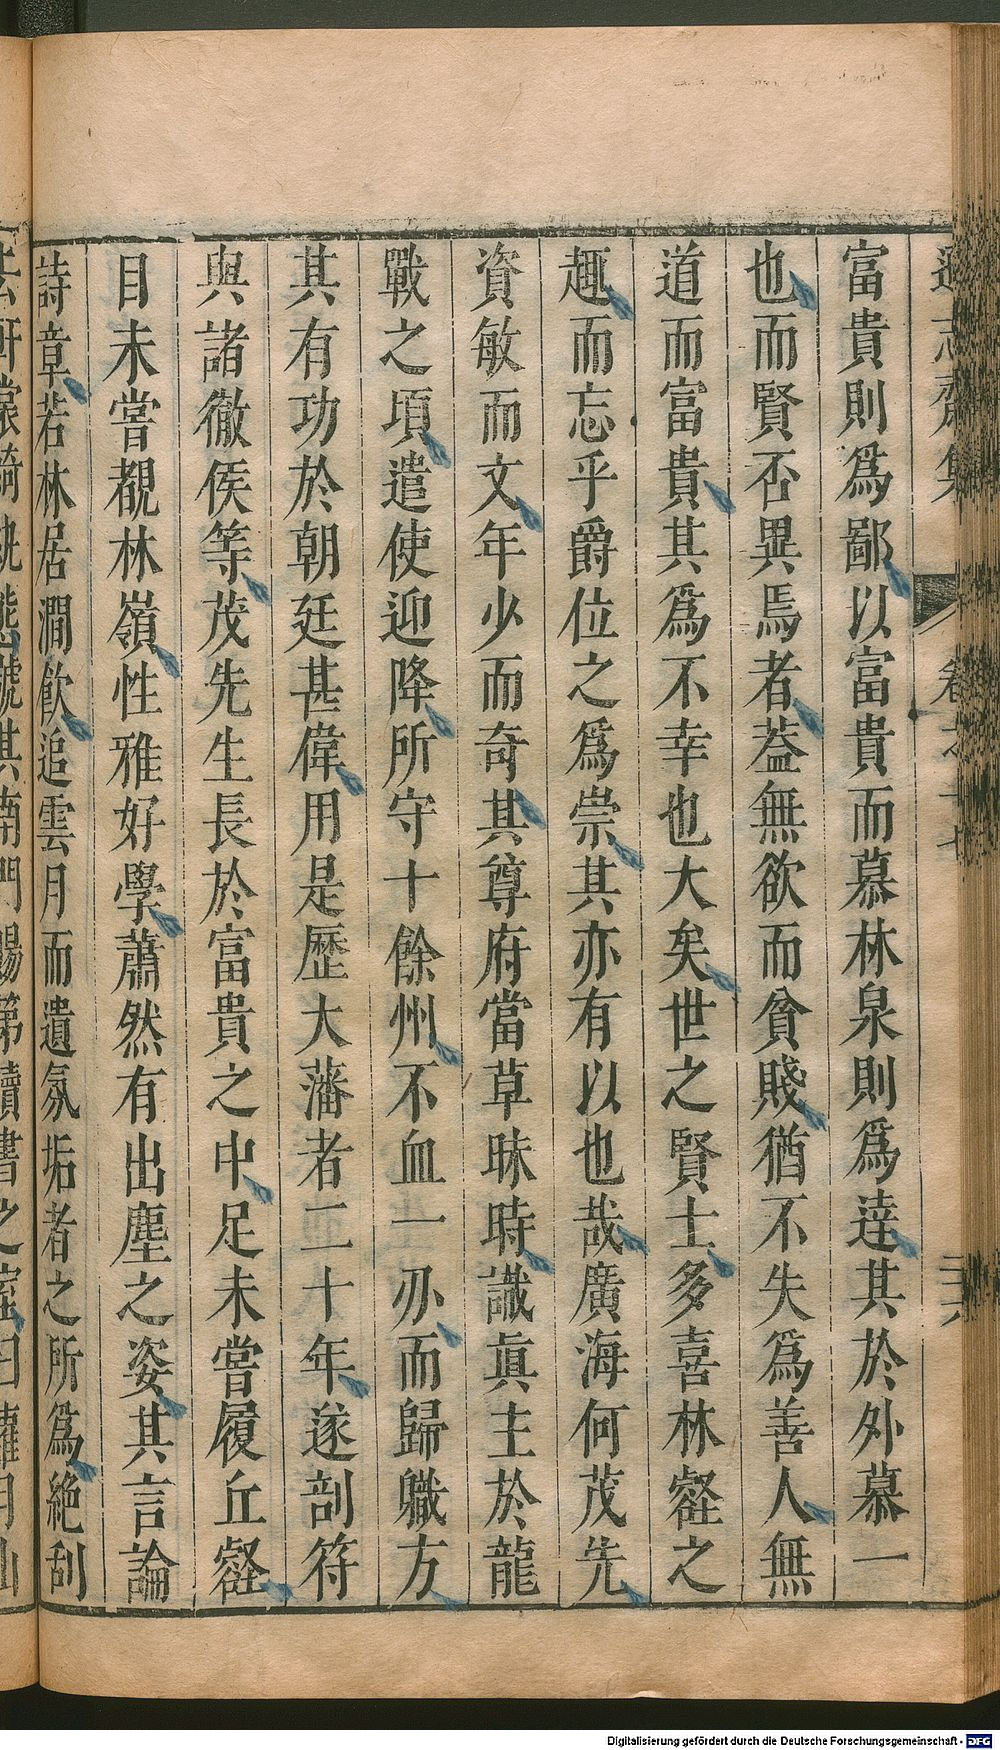 遜志齋集 卷之十七 二六
富貴則爲鄙以富貴而慕林泉則爲逹其於外慕一
也而賢否異焉者葢無欲而貧賤猶不失爲善人無
道而富貴其爲不幸也大矣世之賢士多喜林壑之
趣而忘乎爵位之爲崇其亦有以也哉廣海何茂先
資敏而文年少而奇其尊府當草昧時識眞主於龍
戰之頃遣使迎降所守十餘州不血一刅而歸職方
其有功於朝廷甚偉用是歷大藩者二十年遂剖符
與諸徹侯等茂先生長於富貴之中足未甞履丘壑
目未甞覩林嶺性雅好學蕭然有出塵之姿其言論
詩章若林居澗飮追雲月而遺氛垢者之所爲絶刮
其南門
第讀書之室曰
月山
Digitalisierung gefördert durch die Deutsche Forschungsgemeinschaft - DFG